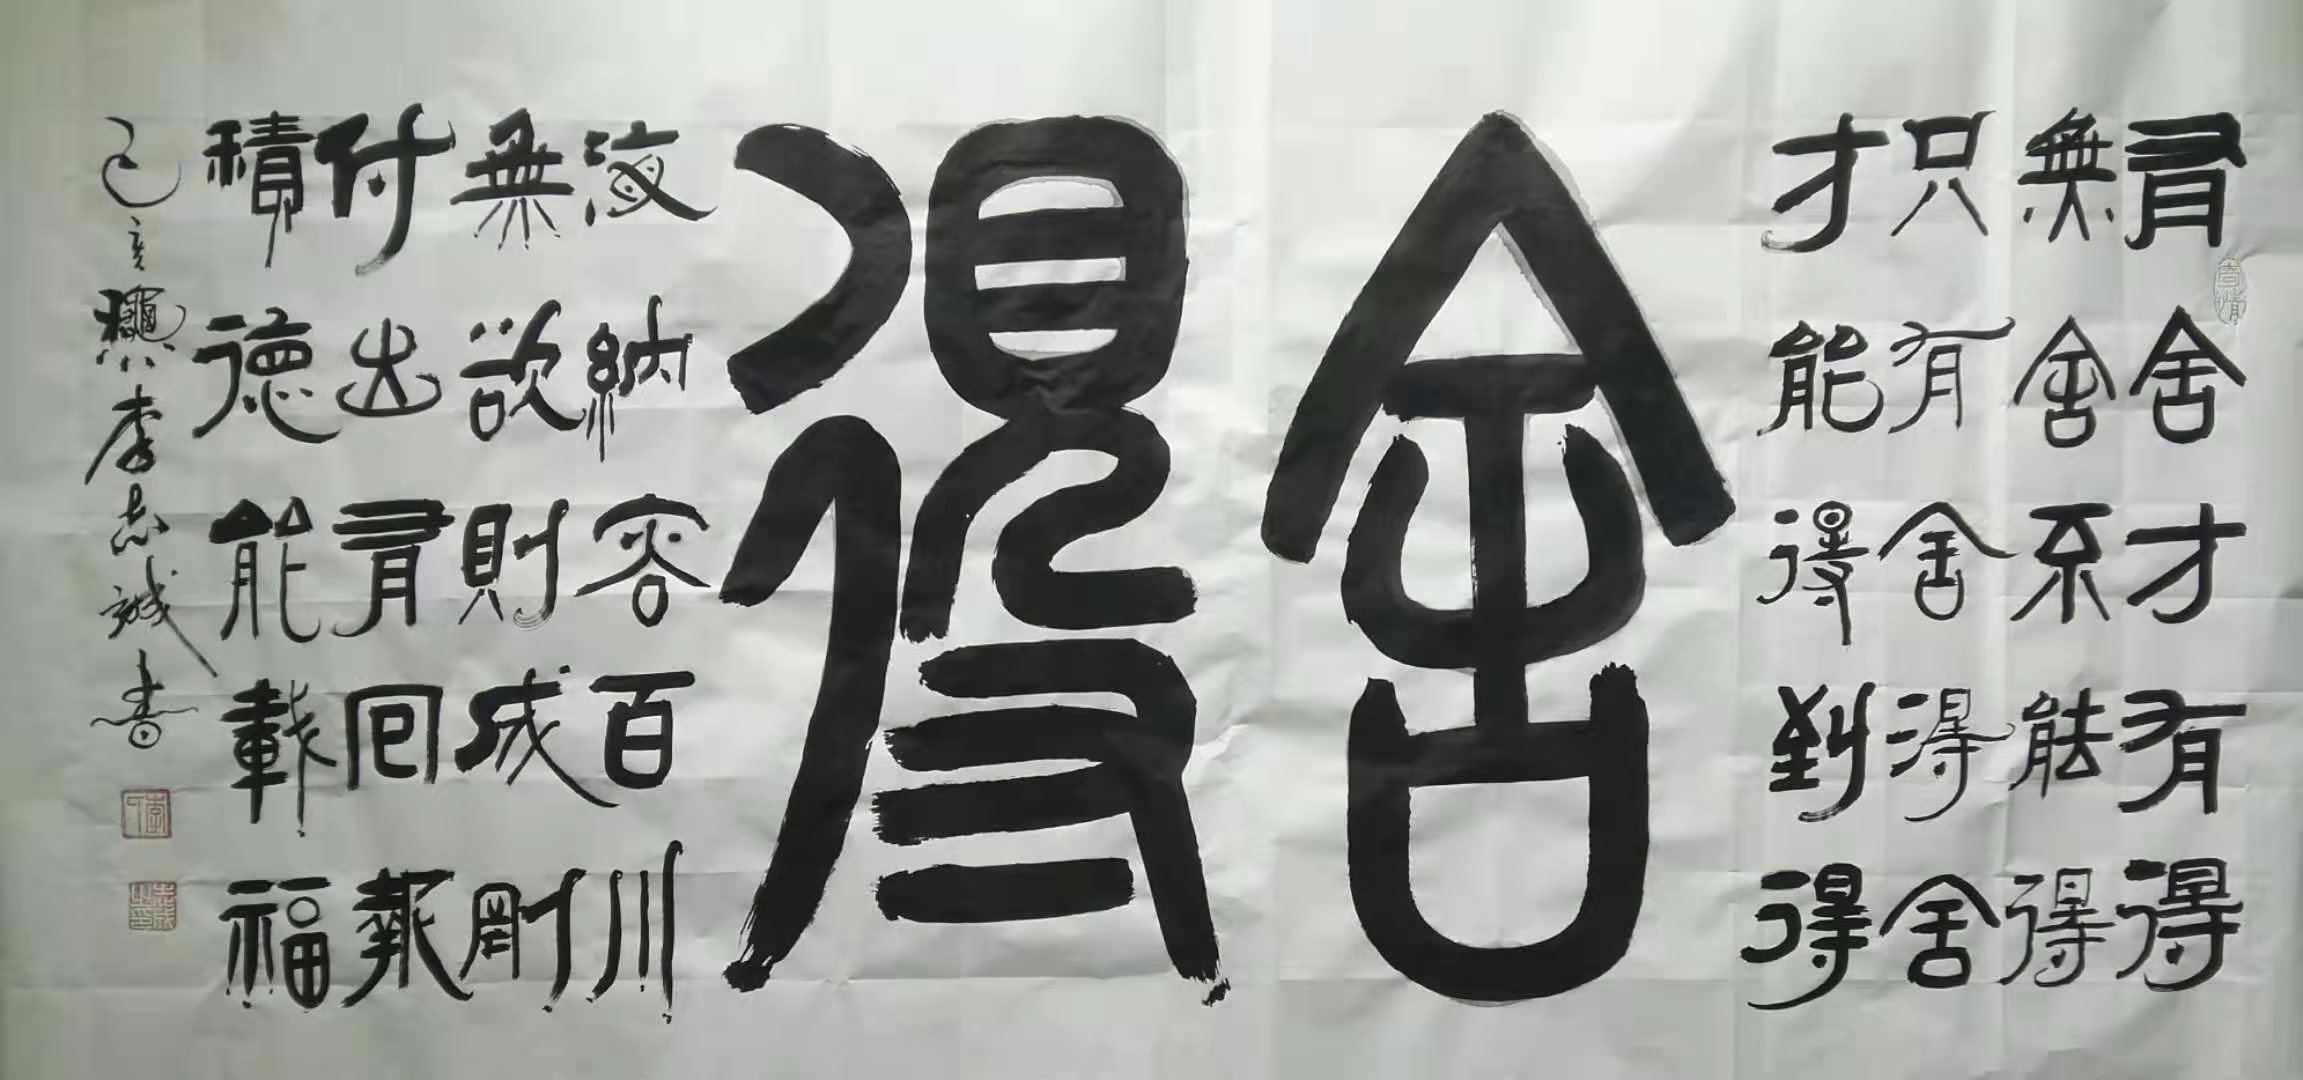 有舍才有得
無舍不能得
只有舍得舍
才能得到得
舍得
海納容百川
無欲則成剛
付出有回報
積德能載福
己亥龝李志誠書